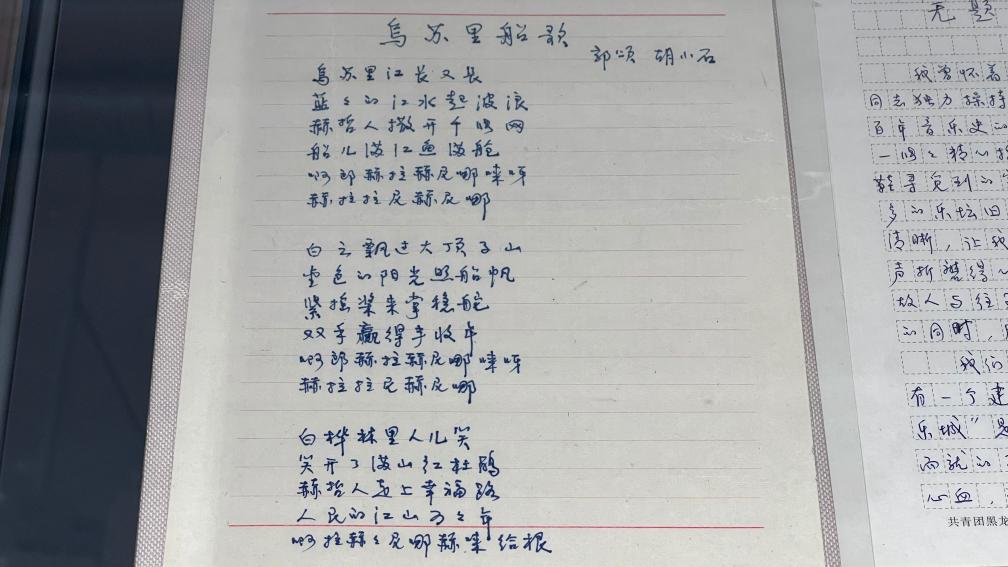 乌苏里船歌
郭颂 胡小石
乌苏里江长又长
蓝々的江水起波浪
赫哲人撒开千张网
船儿满江鱼满舱
啊郎赫拉赫尼哪唻呀
赫拉拉尼赫尼哪
白云飘过大顶子山
金色的阳光照船帆
紧摇桨来掌稳舵
双手赢得丰收年
啊郎赫拉赫尼哪唻呀
赫拉拉尼赫尼哪
白桦林里人儿笑
笑开了满山红杜鹃
赫哲人走上幸福路
人民的江山万々年
啊拉赫々尼哪赫唻给根
无题
我曾怀着
同志独力操持
百年音乐史的
一张々精心
鞋寻觅到的
多的乐坛旧
清晰，让我
声折
故人与往
的同时，
我们
有一个建
乐城”是
而就的
心血，
共青团黑龙